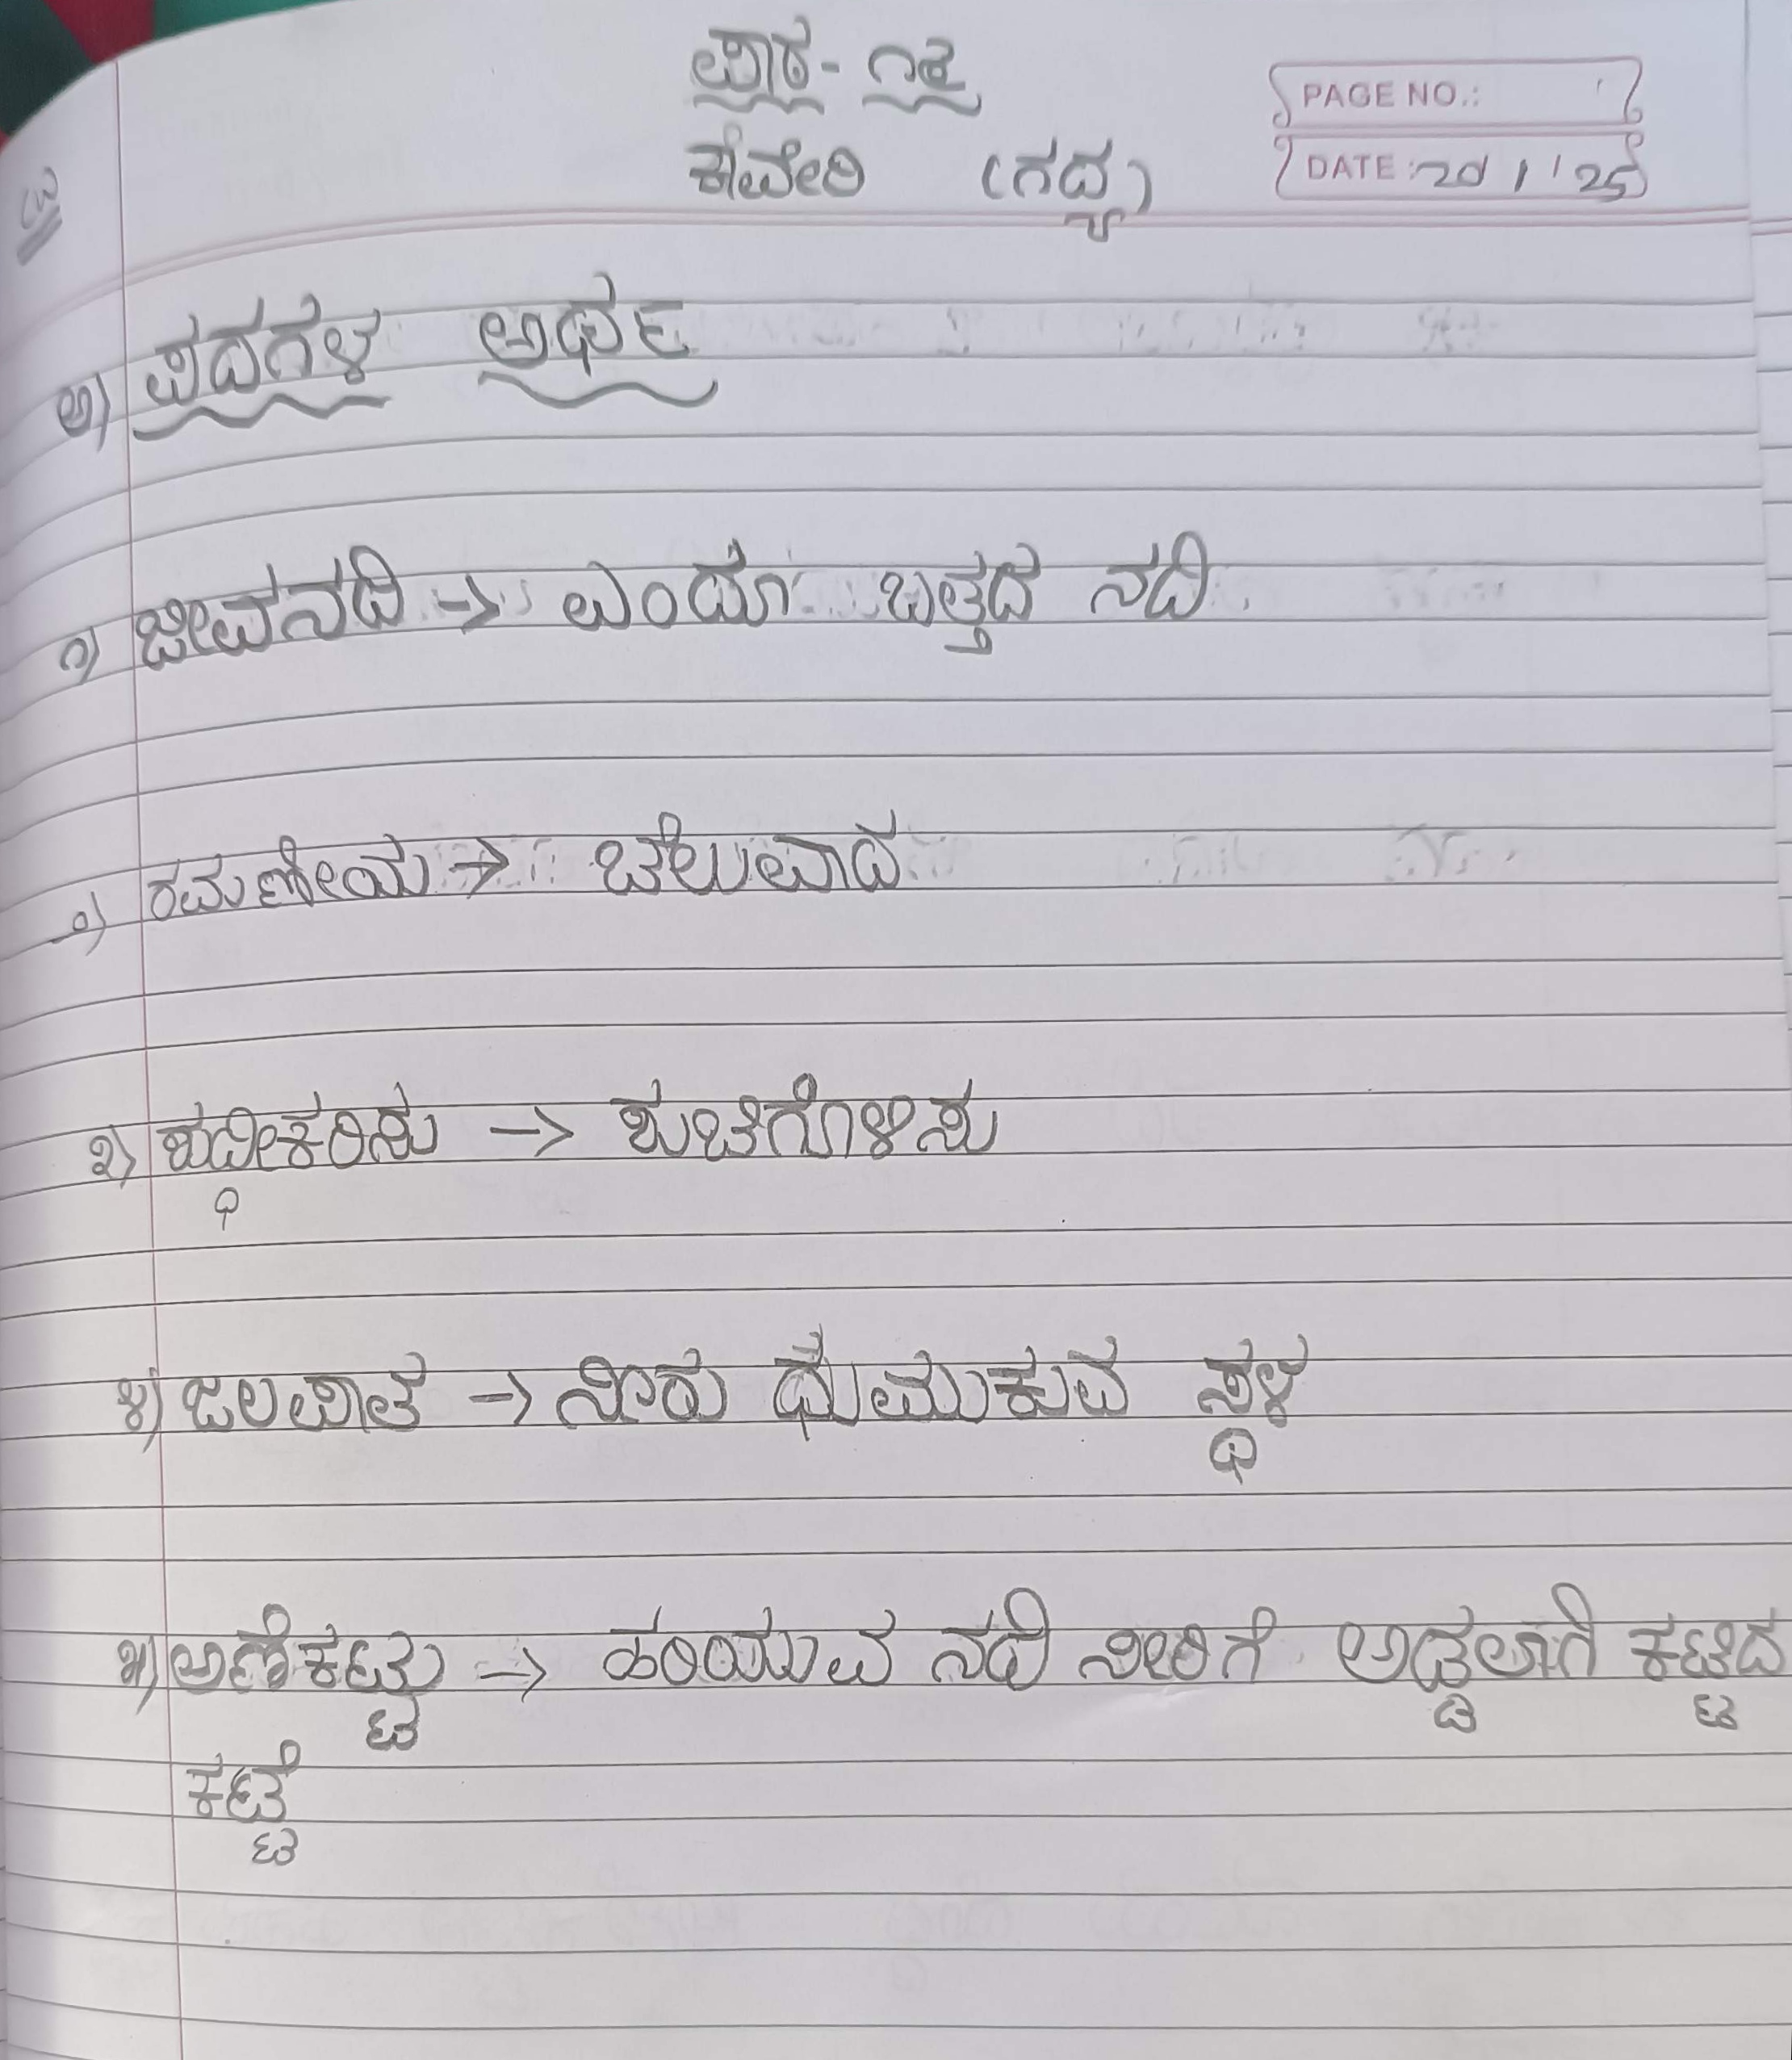 ಪಾಠ - ೧೩
PAGE NO.:
ಕಾವೇರಿ (ಗದ್ಯ)
DATE: 20/1/25
ಅ) ಪದಗಳ ಅರ್ಥ
೧) ಜೀವನದಿ → ಎಂದೂ ಬತ್ತದ ನದಿ
೨) ರಮಣೀಯ → ಚೆಲುವಾದ
೩) ಶುದ್ಧೀಕರಿಸು → ಶುಚಿಗೊಳಿಸು
೪) ಜಲಪಾತ → ನೀರು ಧುಮುಕುವ ಸ್ಥಳ
೫) ಅಣೆಕಟ್ಟು → ಹರಿಯುವ ನದಿ ನೀರಿಗೆ ಅಡ್ಡಲಾಗಿ ಕಟ್ಟಿದ
ಕಟ್ಟೆ